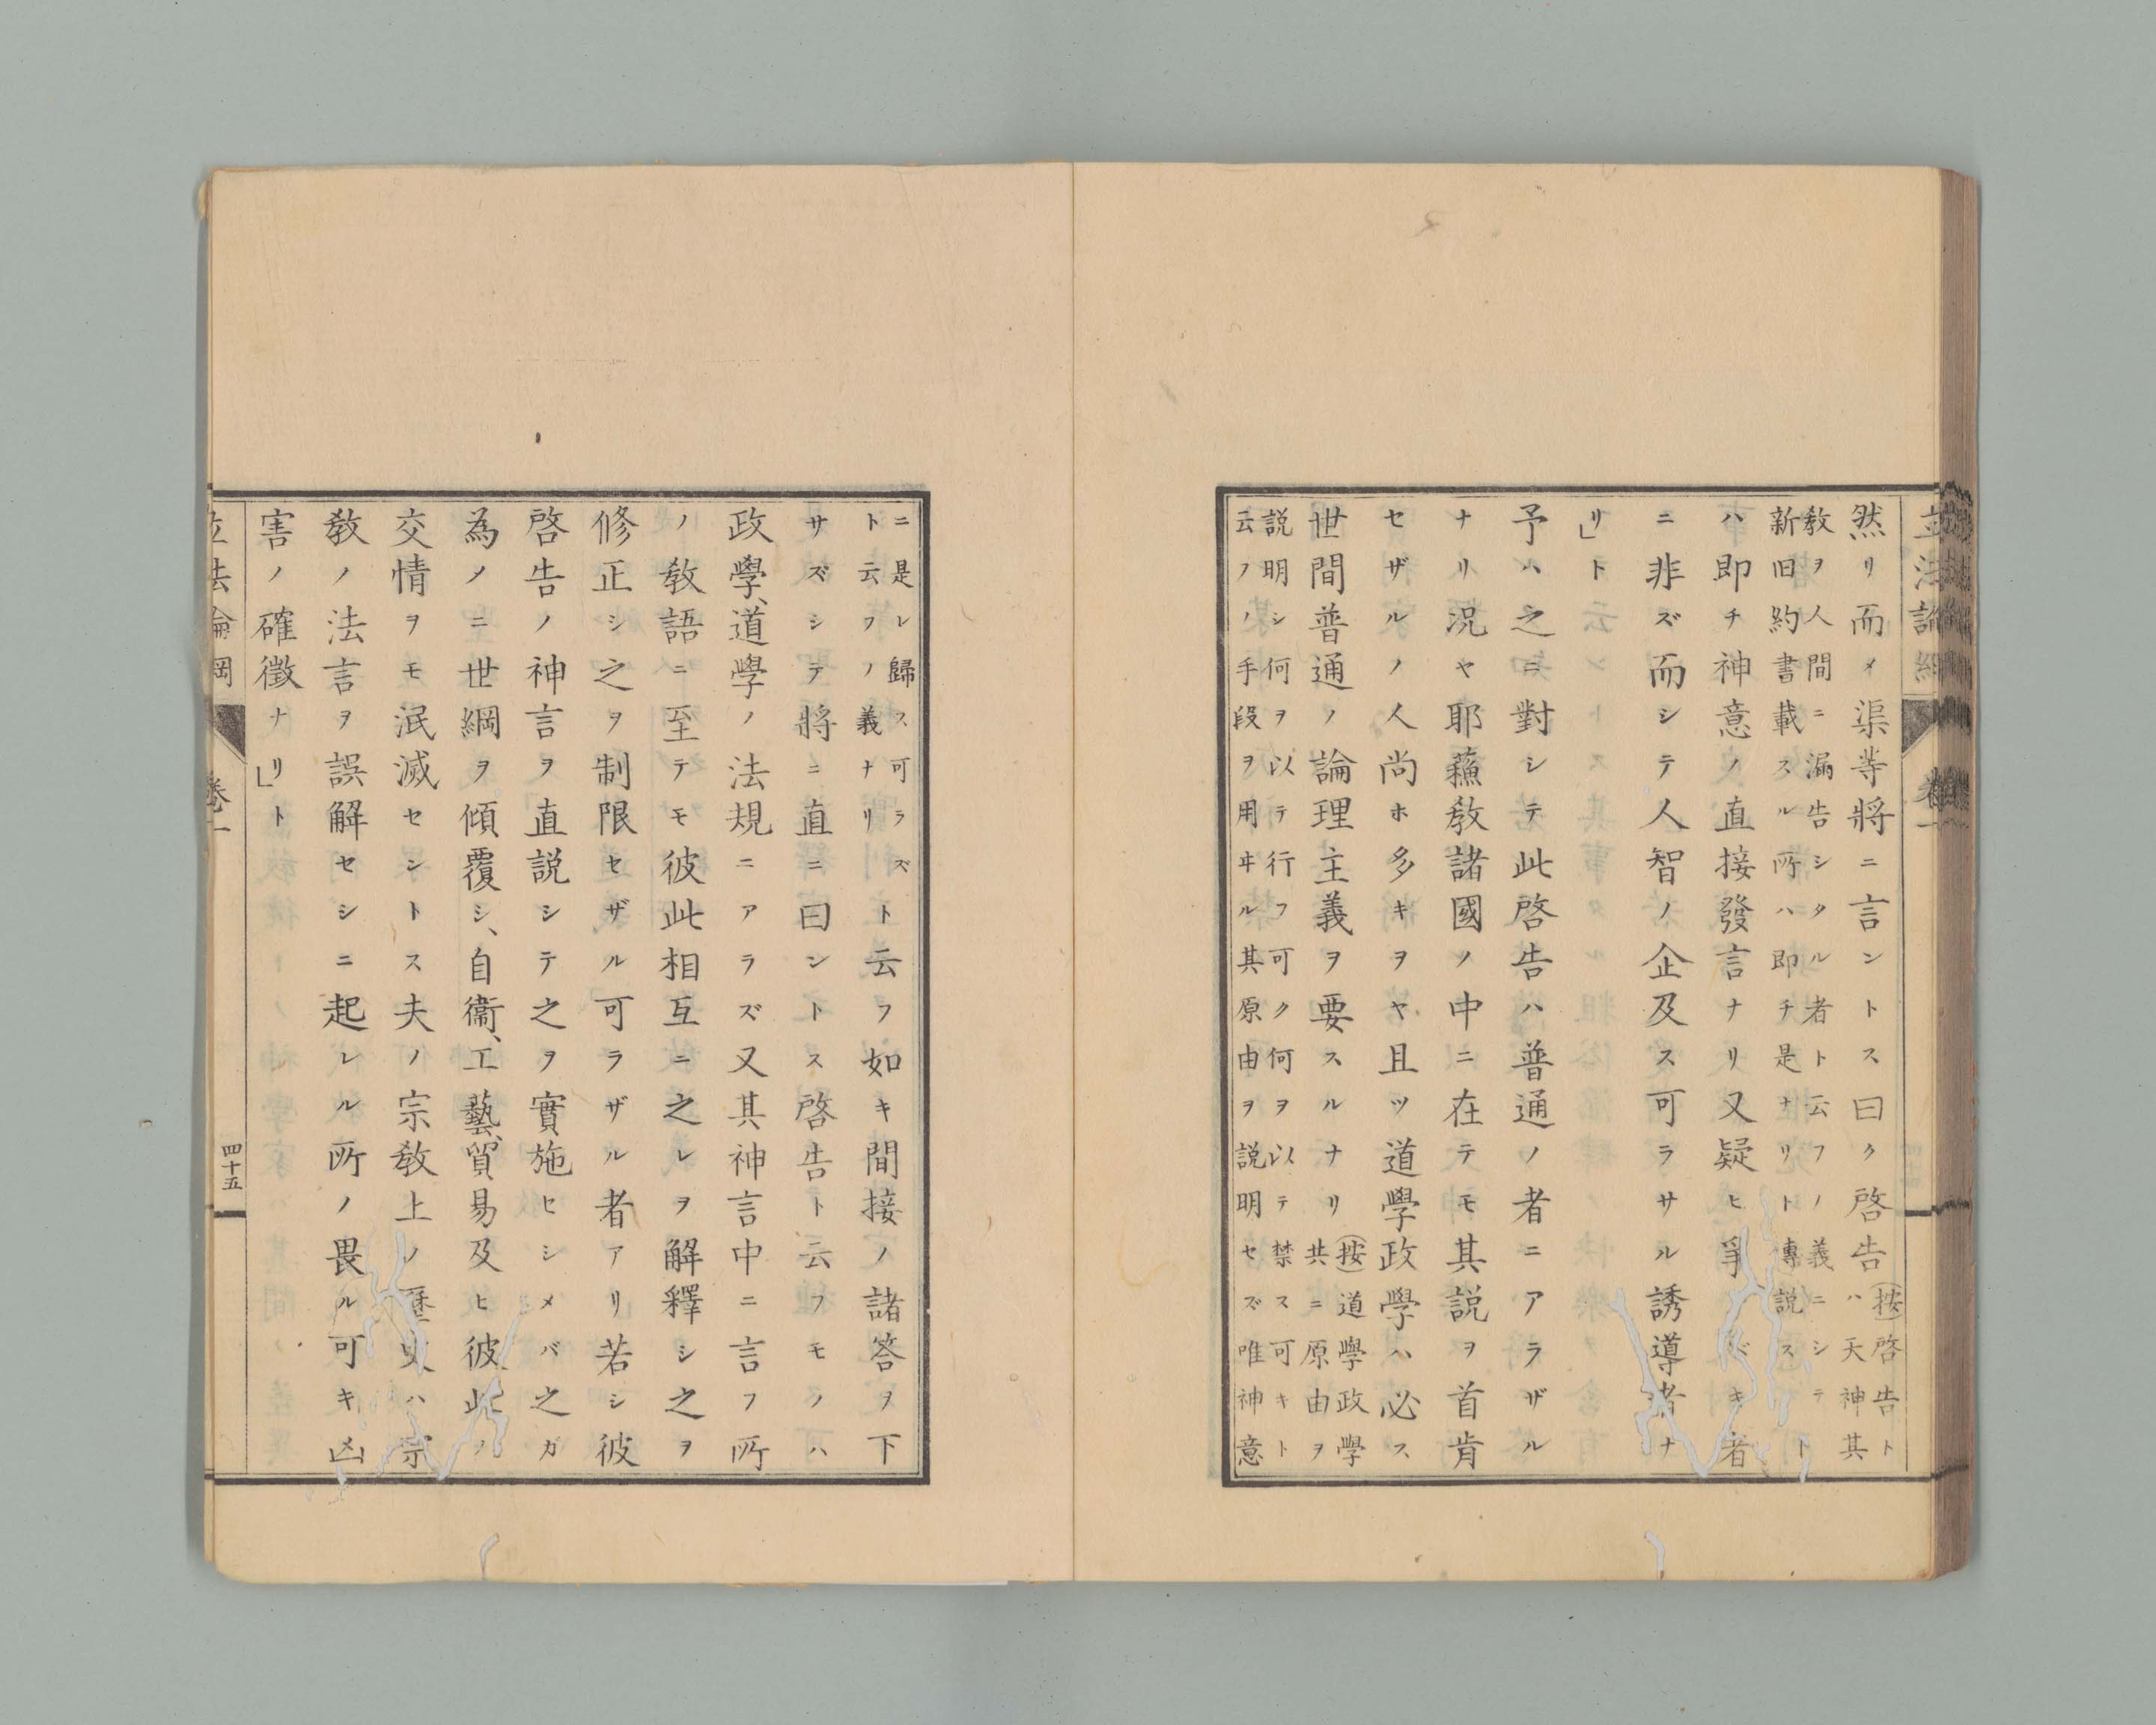 立法論綱 卷一
然リ而メ渠等將ニ言ントス曰ク啓告(按)啓告トハ天神其
教ヲ人間ニ漏告シタル者ト云フノ義ニシテ
新旧約書載スル所ハ即チ是ナリト專説スト
ハ即チ神意ノ直接發言ナリ又疑ヒ爭ベキ者
ニ非ズ而シテ人智ノ企及ス可ラサル誘導者ナ
リ」ト
予ハ之ニ對シテ此啓告ハ普通ノ者ニアラザル
ナリ況ヤ耶蘓教諸國ノ中ニ在テモ其説ヲ首肯
セザルノ人尚ホ多キヲヤ且ツ道學政學ハ必ス
世間普通ノ論理主義ヲ要スルナリ(按)道學政學共ニ原由ヲ
説明シ何ヲ以テ行フ可ク何ヲ以テ禁ス可キト
云フノ手段ヲ用ヰル其原由ヲ説明セズ唯神意
ニ是レ歸ス可ラズ
ト云フノ義ナリト云フ如キ間接ノ諸答ヲ下
サズシテ將ニ直ニ曰ントス啓告ト云フモノハ
政學、道學ノ法規ニアラズ又其神言中ニ言フ所
ノ教語ニ至テモ彼此相互ニ之レヲ解釋シ之ヲ
修正シ之ヲ制限セザル可ラザル者アリ若シ彼
啓告ノ神言ヲ直説シテ之ヲ實施セシメバ之ガ
為ノニ世綱ヲ傾覆シ、自衞、工藝、貿易及ヒ彼此ノ
交情ヲモ泯滅セシトス夫ノ宗教上ノ歴史ハ宗
教ノ法言ヲ誤解セシニ起レル所ノ畏ル可キ凶
害ノ確徴ナリ」ト
立法論綱 卷一 四十五